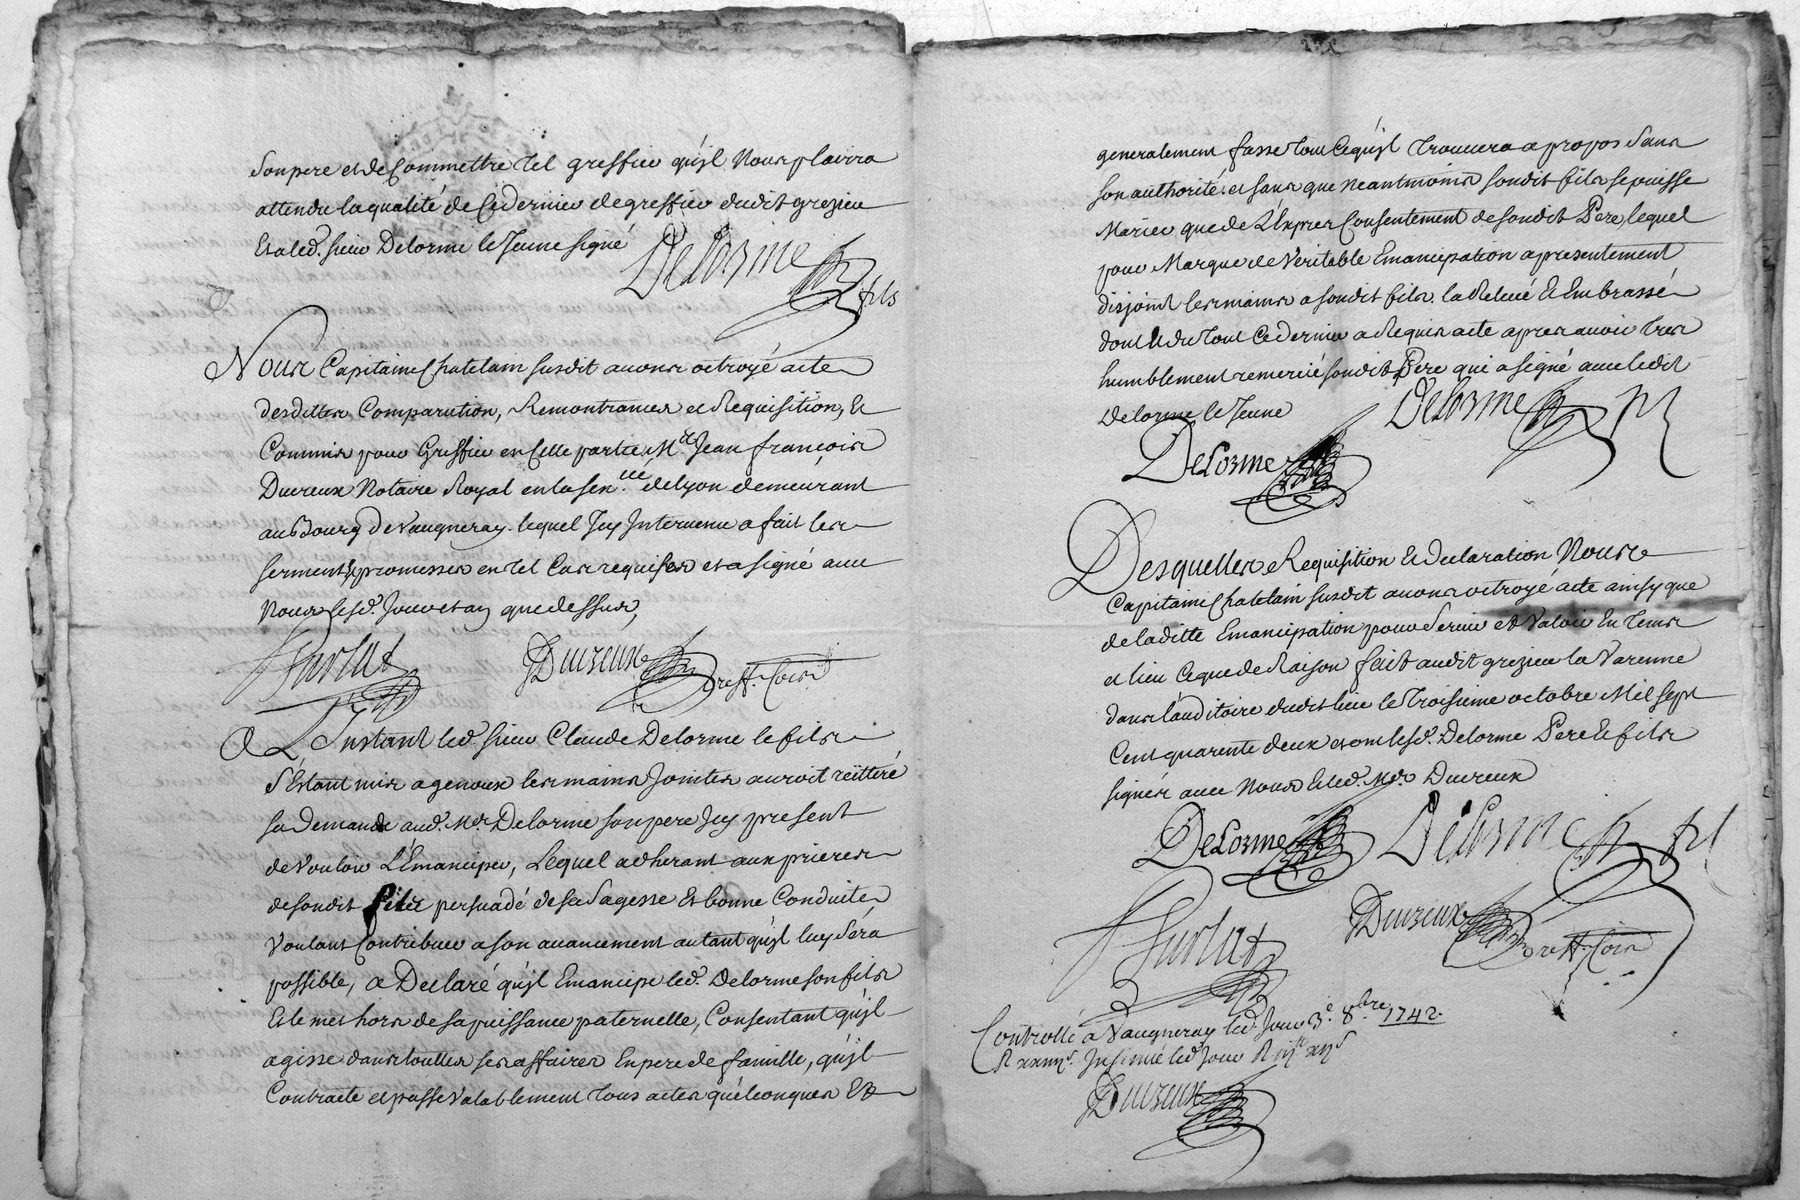 son pere et de Commettre tel greffier qu'jl Nous plairra
attendu la qualité de Ce dernier de greffier dudit grezieu
Et a led. sieur Delorme le Jeune signé
Delorme fils
Nous Capitaine Chatelain susdit avons octroyé acte
desdittes Comparution, Remontrances et Requisition, Et
Commis pour Greffier en Cette partie Me. Jean françois
Ducreux Notaire Royal en la sen.ée de lyon demeurant
au Bourg de Vaugneray lequel Jcy Intervenu a fait les
serment & promesses en tel Cas requises et a signé avec
Nous lesd. Jour et an que dessus,
Ducreux greff. Com
A L'Jnstant led. sieur Claude Delorme le fils
s'Estant mis a genoux les mains Jointes auroit reïtteré
sa demande aud. Me. Delorme son pere Jcy present
de vouloir L'Emanciper, Lequel adherant aux prieres
de sondit fils persuadé de sa sagesse Et bonne Conduite
Voulant Contribuer a son avancement autant qu'jl luy sera
possible, a Declaré qu'jl Emancipe led. Delorme son fils
Et le met hors de sa puissance paternelle, Consentant qu'jl
agisse dans touttes ses affaires En pere de famille, qu'jl
Contracte et passe Valablement tous actes quelconques Et
generalement fasse tout Ce qu'jl trouvera a propos sans
son authorité, et sans que neantmoins sondit fils se puisse
Marier que de L'Exprès Consentement de sondit Pere, lequel
pour Marque de Veritable Emancipation a presentement
disjoint les mains a sondit fils, la Relevé Et Embrassé
dont & du tout Ce dernier a Requis acte apres avoir tres
humblement remercié sondit Pere qui a signé avec ledit
Delorme le Jeune
Delorme fils
Delorme
Desquelles Requisition Et declaration Nous
Capitaine Chatelain susdit avons octroyé acte ainsy que
de laditte Emancipation pour servir et Valoir En tems
et lieu Ce que de Raison fait audit grezieu la Varenne
dans l'auditoire dudit lieu le troisieme octobre Mil sept
Cent quarente deux et ont lesd. Delorme Pere Et fils
signés avec Nous Et led. Me. Ducreux
Delorme Delorme fils
Ducreux greff. Com
Controllé à Vaugneray led. Jour 3e. 8bre. 1742.
Jnsinué led. Jour
Ducreux